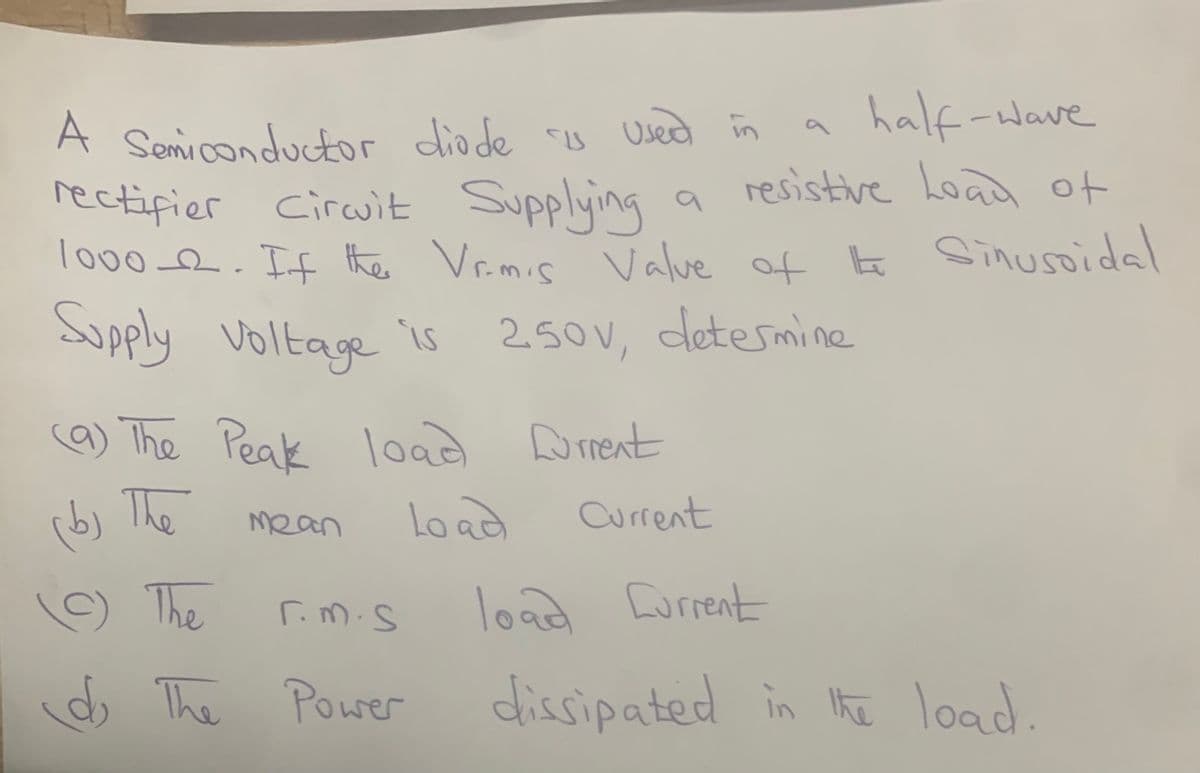 A Semiconductor diode is Used in a half-wave
rectifier Circuit Supplying a resistive Load of
1000 Ω. If the Vr.m.s Value of the Sinusoidal
Supply Voltage is 250V, determine
(a) The Peak load Current
(b) The mean Load Current
(c) The r.m.s load Current
(d) The Power dissipated in the load.